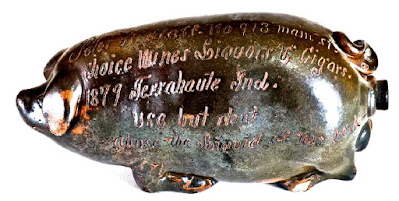 No 913 main st
Choice Wines Liquors & Cigars.
1879 Terrahaute Ind.
Use but dont
Abuse The